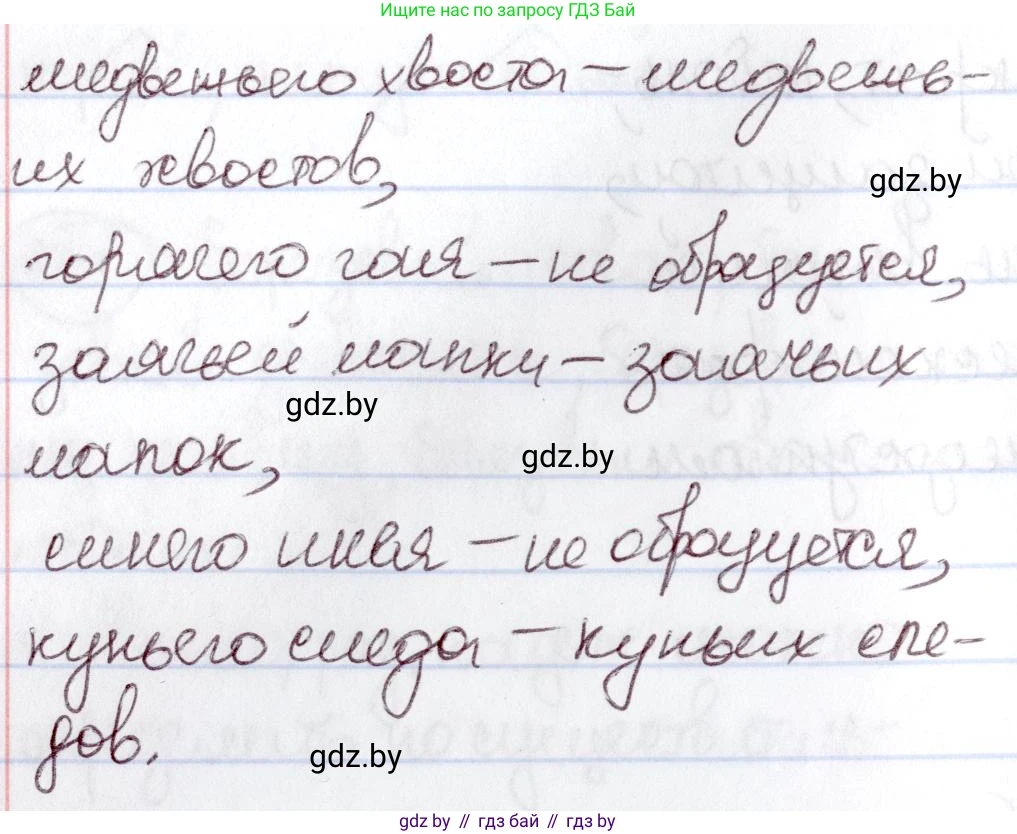 Ищите нас по запросу ГДЗ Бай
медвежьего хвоста – медвежь-
их хвостов,
gdz.by
горячего – не образуется,
заячьей лапки – заячьих
gdz.by
лапок,
gdz.by
синего инея – не образуется,
куньего следа – куньих сле-
дов.
gdz.by
gdz.by // гдз бай // гдз by